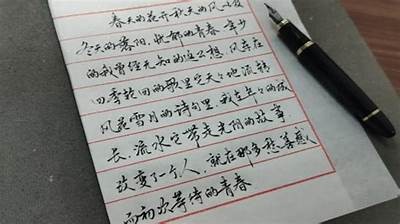 春天的花开秋天的风以及
冬天的落阳，忧郁的青春 年少
的我曾经无知的这么想，风车在
四季轮回的歌里它天天地流转
风花雪月的诗句里，我在年年的成
长，流水它带走光阴的故事
改变了一个人，就在那多愁善感
而初次等待的青春